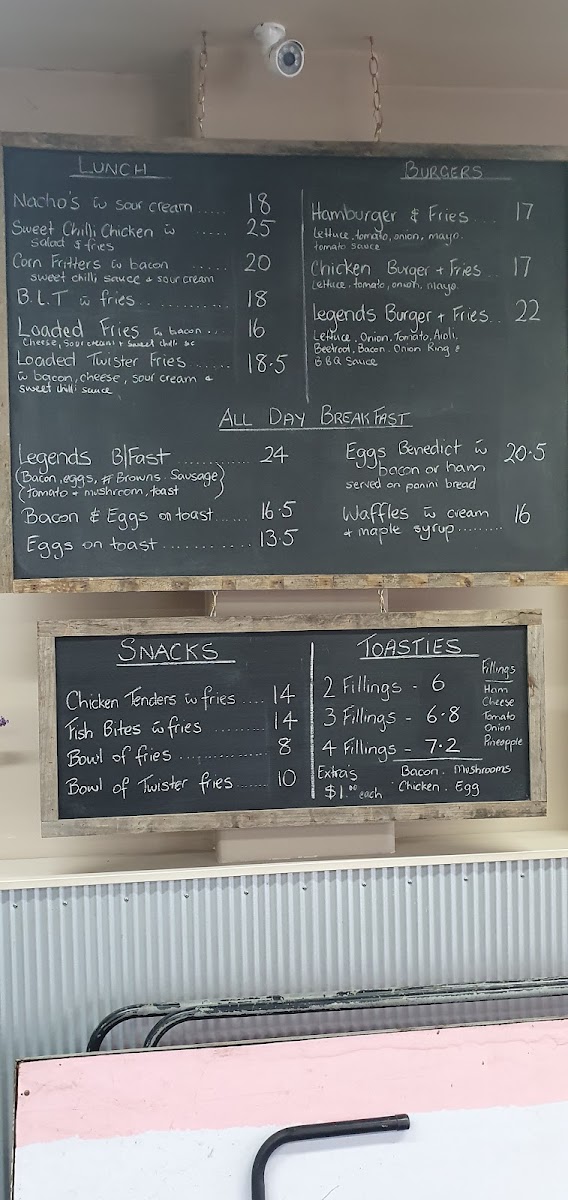 LUNCH
Nacho's w̄ sour cream ..... 18
Sweet Chilli Chicken w̄ ..... 25
salad & fries
Corn Fritters w̄ bacon ...... 20
sweet chilli sauce + sour cream
B.L.T w̄ fries ........ 18
Loaded Fries w̄ bacon ... 16
cheese, sour cream + sweet chilli sc
Loaded Twister Fries ...... 18.5
w̄ bacon, cheese, sour cream &
sweet chilli sauce
BURGERS
Hamburger & Fries ... 17
Lettuce, tomato, onion, mayo.
tomato sauce
Chicken Burger + Fries ... 17
Lettuce, tomato, onion, mayo
Legends Burger + Fries .. 22
Lettuce. Onion. Tomato. Aioli.
Beetroot. Bacon. Onion King &
BBQ Sauce
ALL DAY BREAKFAST
Legends B/Fast ............ 24
(Bacon, eggs, # Browns. Sausage)
(tomato + mushroom, toast)
Bacon & Eggs on toast ...... 16.5
Eggs on toast ............ 13.5
Eggs Benedict w̄ 20.5
bacon or ham
served on panini bread
Waffles w̄ cream 16
+ maple syrup .........
SNACKS
Chicken Tenders w̄ fries .... 14
Fish Bites w̄ fries ........ 14
Bowl of fries ............ 8
Bowl of Twister fries ..... 10
TOASTIES
2 Fillings - 6
3 Fillings - 6.8
4 Fillings - 7.2
Fillings
Ham
Cheese
Tomato
Onion
Pineapple
Extra's
$1.00 each
Bacon. Mushrooms
Chicken. Egg